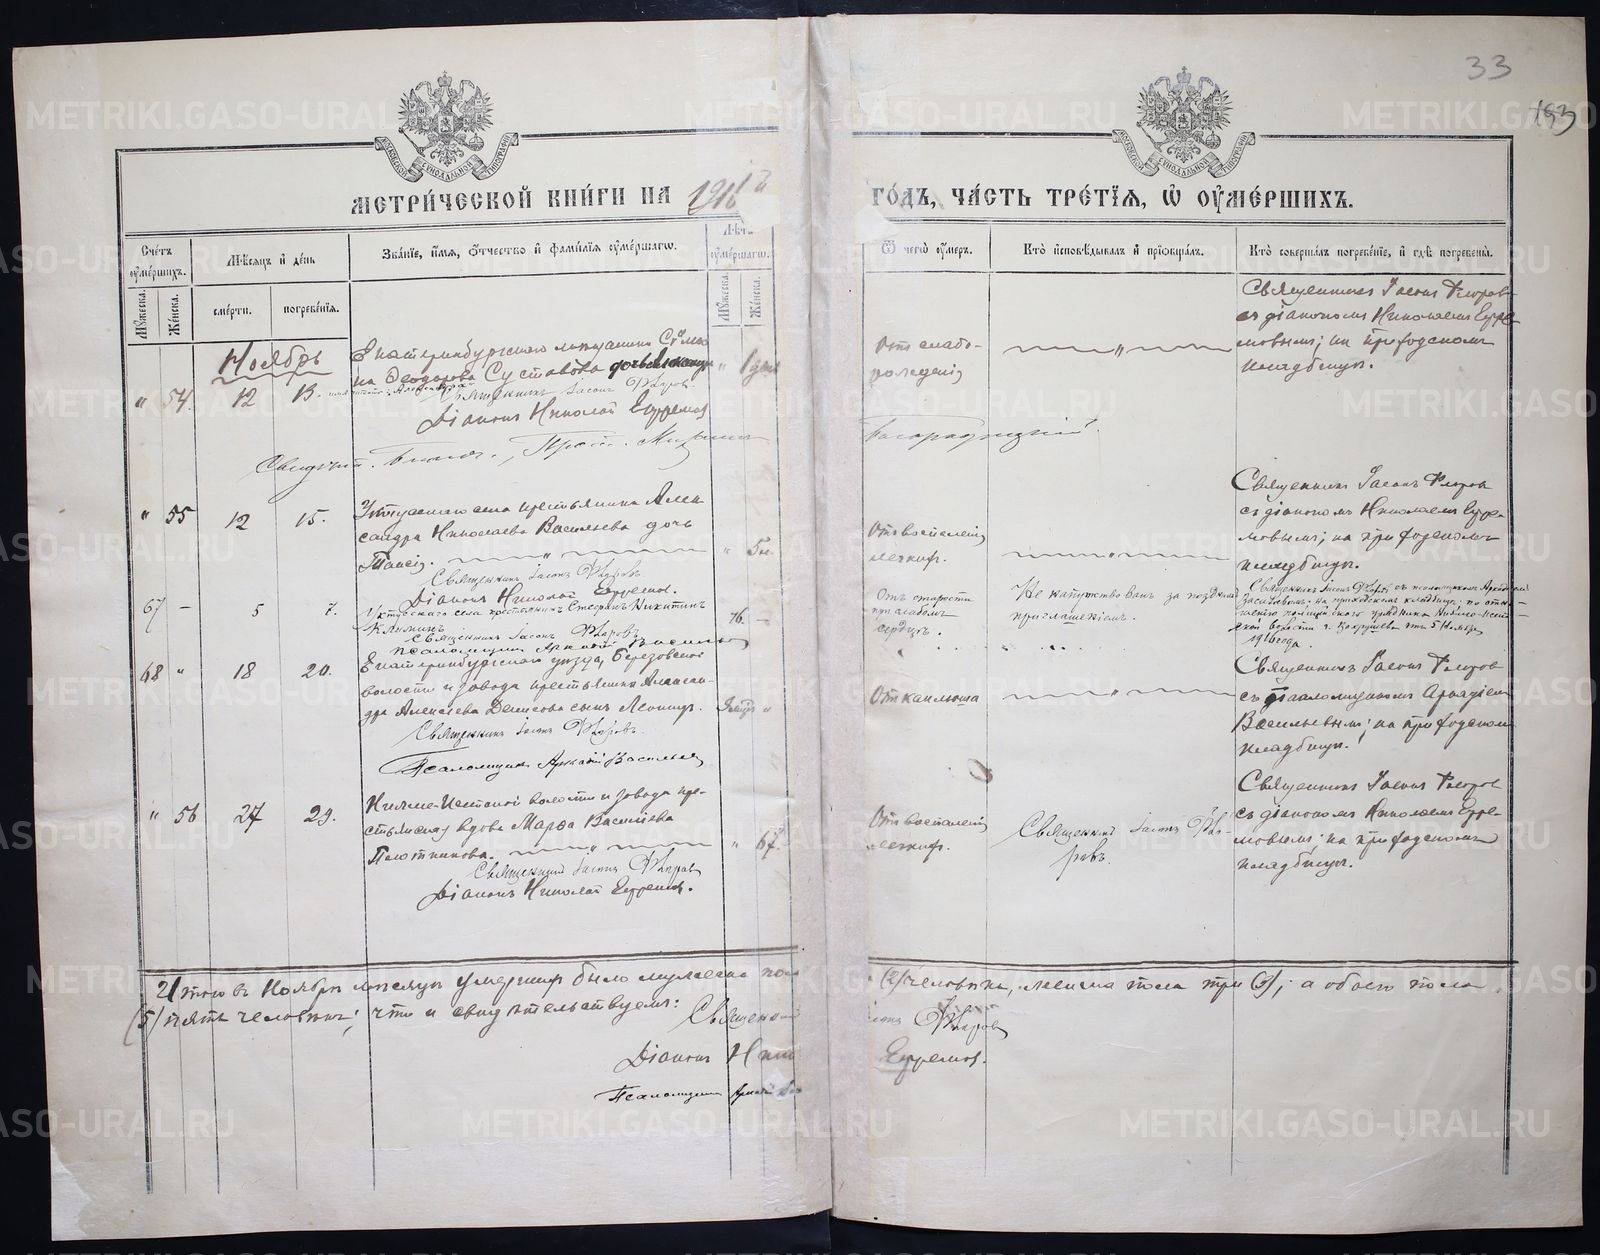 33
193
МЕТРИ́ЧЕСКОЙ КНИ́ГИ НА 1916 й ГО́ДЪ, ЧА́СТЬ ТРЕ́ТІѦ, Ѡ ОУМЕ́РШИХЪ.
Счетъ оумершихъ.
Мужеска.
Женска.
Мѣсяцъ и день
смерти.
погребенія.
Званіе, имя, отчество и фамилія оумершагѡ.
Лѣта оумершагѡ.
Мужеска.
Женска.
Ѿ чегѡ оумеръ.
Кто исповѣдывалъ и пріобщалъ.
Кто совершалъ погребеніе, и гдѣ погребены.
Ноябрь
" 54. 12 13.
Екатеринбургскаго мѣщанина
Ѳеодорова Суставова дочь Александра
Священникъ Іасонъ Флёровъ.
Діаконъ Николай Ефремов
" 1 день
Отъ слабо-
рожденія
Священникъ Іасонъ Флёровъ
съ діакономъ Николаемъ Ефре-
мовымъ; на приходскомъ
кладбищѣ.
" 55 12 15.
Уктусскаго села крестьянина Алек-
сандра Николаева Васильева дочь
Таисія.
Священникъ Іасонъ Флёровъ
Діаконъ Николай Ефремов.
" 5 л.
Отъ воспаленія
легкихъ.
Священникъ Іасонъ Флёровъ
съ діакономъ Николаемъ Ефре-
мовымъ; на приходскомъ
кладбищѣ.
67 – 5 7.
Уктусскаго села крестьянинъ Стефанъ Никитинъ
Климинъ
Священникъ Іасонъ Флёровъ
Псаломщикъ Аркадій Васильев
76. –
Отъ старости
при слабомъ
сердцѣ.
Не напутствованъ за позднимъ
приглашеніемъ.
Священникъ Іасонъ Флёровъ съ псаломщикомъ Аркадіемъ
Васильевымъ; на приходскомъ кладбищѣ; по отно-
шенію полицейскаго урядника Нижне-Исет-
ской волости отъ 5 Ноября
1916 года.
68 " 18 20.
Екатеринбургскаго уѣзда, Березовской
волости и завода крестьянина Алексан-
дра Алексѣева Денисова сынъ Леонидъ.
Священникъ Іасонъ Флёровъ.
Псаломщикъ Аркадій Васильев
"
Отъ кашлюша
Священникъ Іасонъ Флёровъ
съ псаломщикомъ Аркадіемъ
Васильевымъ; на приходскомъ
кладбищѣ.
" 56 27 29.
Нижне-Исетской волости и завода кре-
стьянская вдова Марѳа Васильева
Плотникова.
Священникъ Іасонъ Флёровъ
Діаконъ Николай Ефремов.
" 67.
Отъ воспаленія
легкихъ.
Священникъ Іасонъ Флё-
ровъ.
Священникъ Іасонъ Флёровъ
съ діакономъ Николаемъ Ефре-
мовымъ; на приходскомъ
кладбищѣ.
Итого въ Ноябрѣ мѣсяцѣ умершихъ было мужеска пола (2) человѣка, женска пола три (3); а обоего пола
(5) пять человѣкъ; что и свидѣтельствуемъ: Священникъ Іасонъ Флёровъ
Діаконъ Николай Ефремов.
Псаломщикъ Аркадій Вас